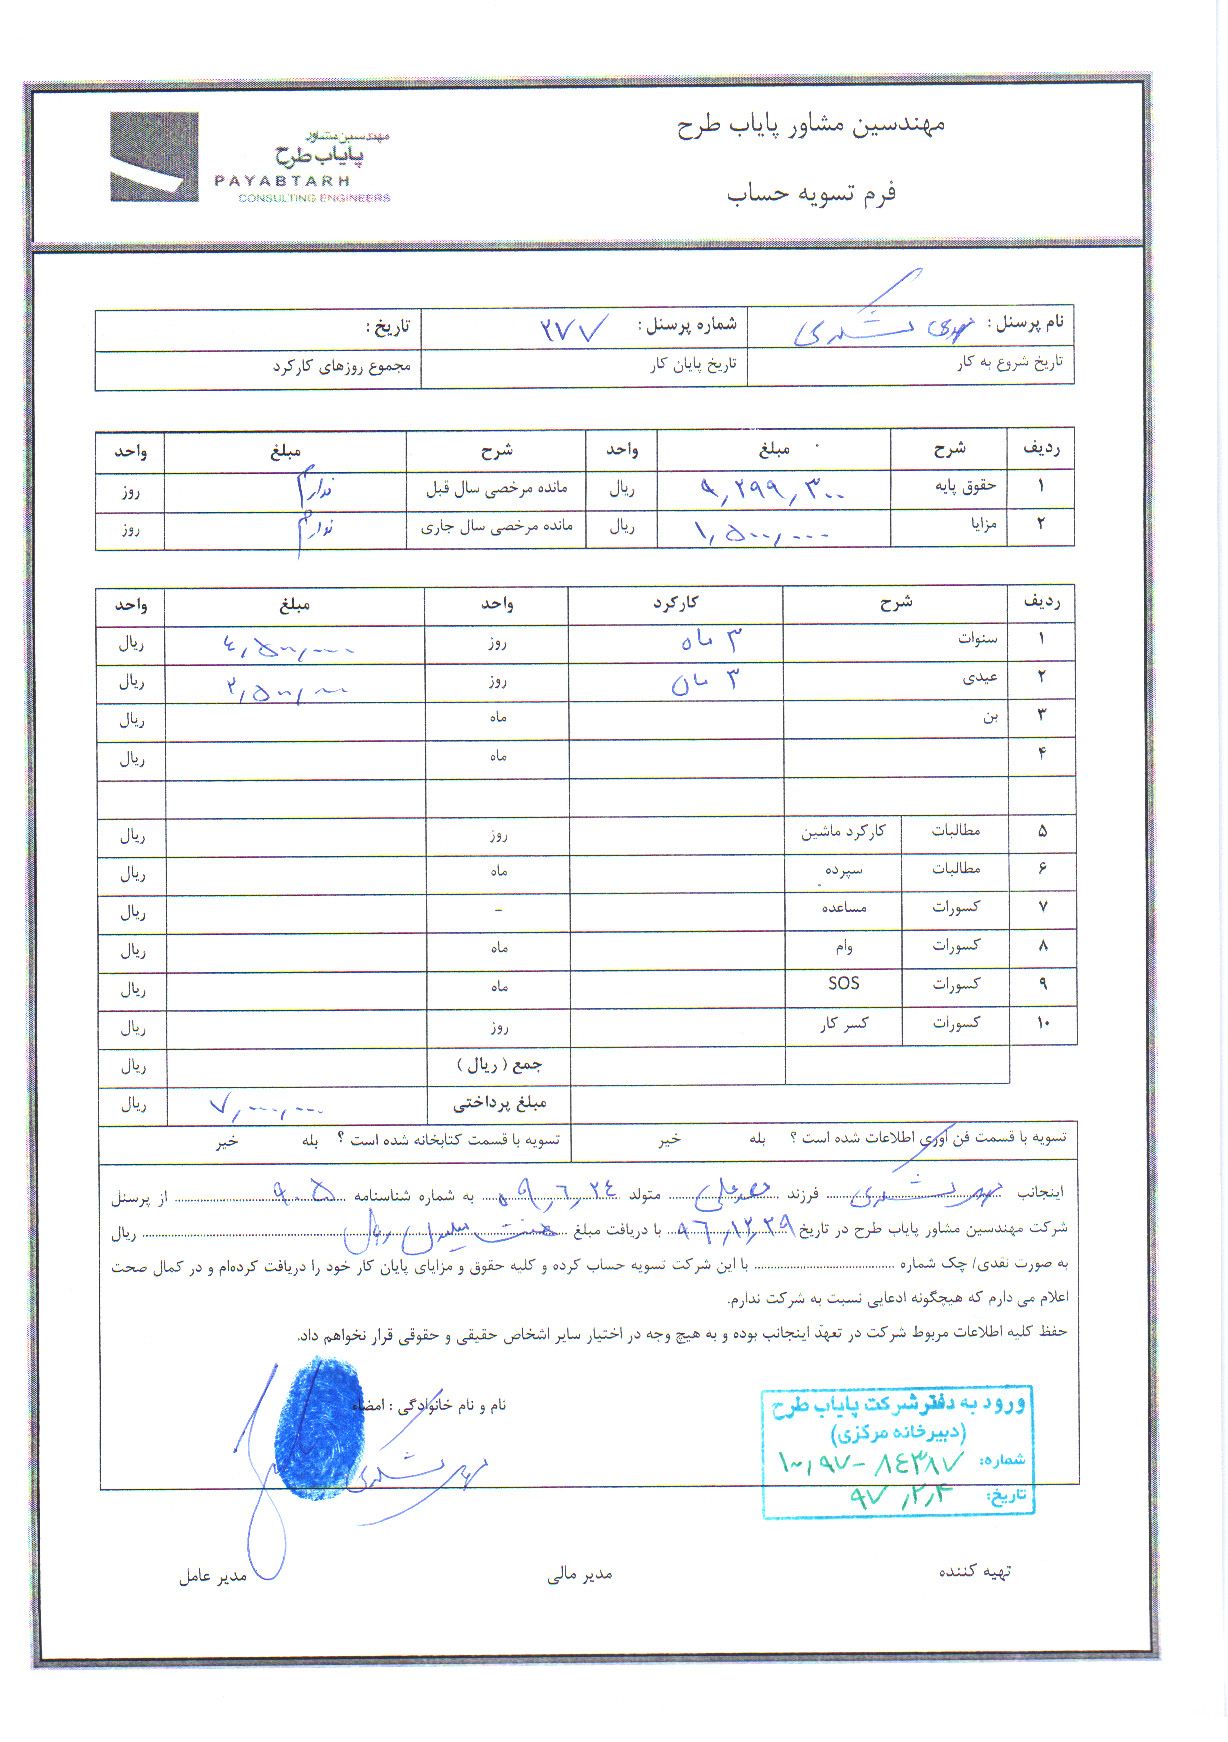 مهندسین مشاور پایاب طرح
مهندسین مشاور
پایاب طرح
PAYABTARH
CONSULTING ENGINEERS
فرم تسویه حساب
نام پرسنل : مهدی شماره پرسنل : ۲۷۷ تاریخ :
تاریخ شروع به کار تاریخ پایان کار مجموع روزهای کارکرد
ردیف شرح مبلغ واحد شرح مبلغ واحد
۱ حقوق پایه ۹,۲۹۹,۳۰۰ ریال مانده مرخصی سال قبل ندارم روز
۲ مزایا ۱,۵۰۰,۰۰۰ ریال مانده مرخصی سال جاری ندارم روز
ردیف شرح کارکرد واحد مبلغ واحد
۱ سنوات ۳ ماه روز ۴,۵۰۰,۰۰۰ ریال
۲ عیدی ۳ ماه روز ۲,۵۰۰,۰۰۰ ریال
۳ بن ماه ریال
۴ ماه ریال
۵ مطالبات کارکرد ماشین روز ریال
۶ مطالبات سپرده ماه ریال
۷ کسورات مساعده - ریال
۸ کسورات وام ماه ریال
۹ کسورات SOS ماه ریال
۱۰ کسورات کسر کار روز ریال
جمع ( ریال ) ریال
مبلغ پرداختی ۷,۰۰۰,۰۰۰ ریال
تسویه با قسمت فن آوری اطلاعات شده است ؟ بله خیر تسویه با قسمت کتابخانه شده است ؟ بله خیر
اینجانب مهدی فرزند متولد ۵۹,۶,۲۴ به شماره شناسنامه ۹۰۵ از پرسنل
شرکت مهندسین مشاور پایاب طرح در تاریخ ۹۶,۱۲,۲۹ با دریافت مبلغ هفت میلیون ریال ریال
به صورت نقدی/ چک شماره با این شرکت تسویه حساب کرده و کلیه حقوق و مزایای پایان کار خود را دریافت کرده‌ام و در کمال صحت
اعلام می دارم که هیچگونه ادعایی نسبت به شرکت ندارم.
حفظ کلیه اطلاعات مربوط شرکت در تعهّد اینجانب بوده و به هیچ وجه در اختیار سایر اشخاص حقیقی و حقوقی قرار نخواهم داد.
نام و نام خانوادگی : امضاء
مهدی
ورود به دفتر شرکت پایاب طرح
(دبیرخانه مرکزی)
شماره: ۱۰۰,۹۷-۸۴۳۸۷
تاریخ: ۹۷,۲,۴
تهیه کننده مدیر مالی مدیر عامل